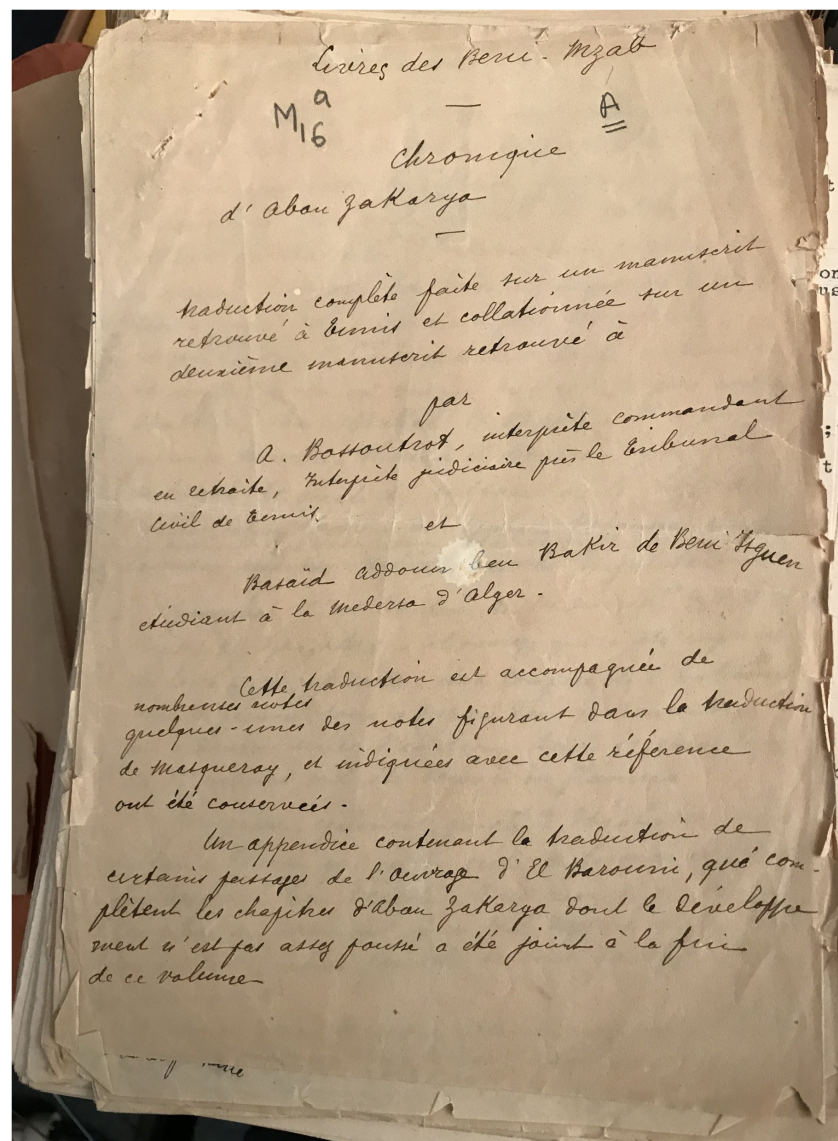 Livres des Beni-Mzab
Ma16
A
Chronique
d'Abou Zakarya
traduction complète faite sur un manuscrit
retrouvé à Tunis et collationnée sur un
deuxième manuscrit retrouvé à
par
A. Bossoutrot, interprète commandant
en retraite, Interprète judiciaire près le Tribunal
Civil de Tunis.
et
Basaïd Addoun ben Bakir de Beni Isguen
étudiant à la Medersa d'Alger.
Cette traduction est accompagnée de
nombreuses notes
quelques-unes des notes figurant dans la traduction
de Masqueray, et indiquées avec cette référence
ont été conservées.
Un appendice contenant la traduction de
certains passages de l'ouvrage d'El Barouni, qui com-
plètent les chapitres d'Abou Zakarya dont le développe
ment n'est pas assez poussé a été joint à la fin
de ce volume